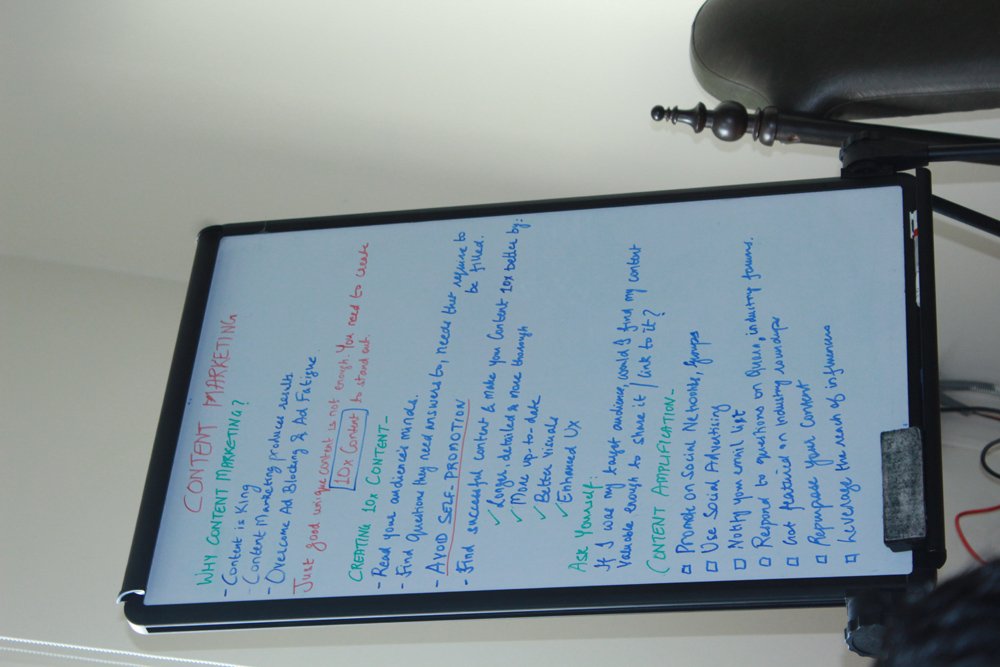 CONTENT MARKETING
WHY CONTENT MARKETING?
- Content is King
- Content Marketing produces results
- Overcome Ad Blocking & Ad Fatigue
Just good unique content is not enough. You need to create
10x Content to stand out.
CREATING 10x CONTENT-
- Read your audience's minds.
- Find Question they need answers to, needs that require to
be filled.
- AVOID SELF-PROMOTION
- Find successful content & make your content 10x better by:
✓ Longer, detailed & more thorough
✓ More up-to-date
✓ Better visuals
✓ Enhanced UX
Ask Yourself:
If I was my target audience, would I find my content
valuable enough to share it / link to it?
CONTENT AMPLIFICATION-
□ Promote on Social Networks, groups
□ Use Social Advertising
□ Notify your email list
□ Respond to questions on Quora, industry forums.
□ Got featured on Industry roundups
□ Repurpose your Content
□ Leverage the reach of influencers